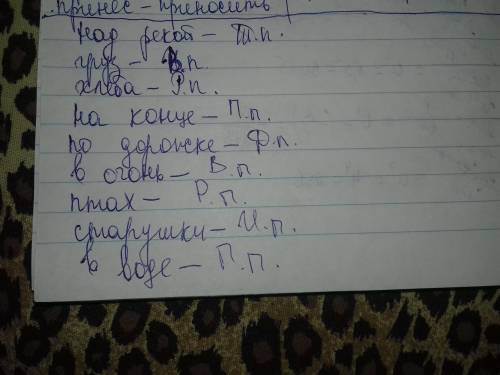 принес – приносить
над рекой – Т.п.
груз – В.п.
хлеба – Р.п.
на конце – П.п.
по дорожке – Д.п.
в огонь – В.п.
птах – Р.п.
старушки – И.п.
в воде – П.п.